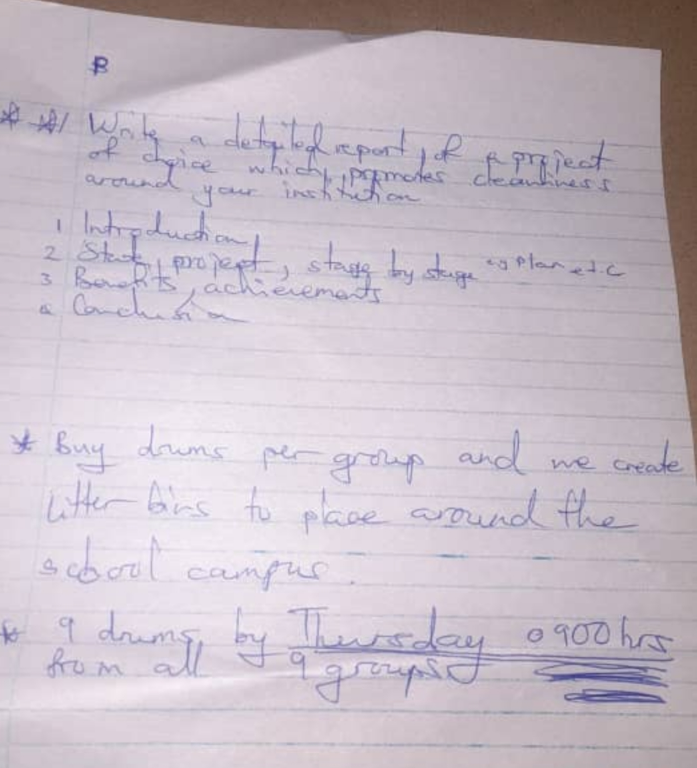 B
** 1 Write a detailed report, of a project
of choice which, promotes cleanliness
around your institution
1 Introduction
2 State, project, stage by stage eg plan etc
3 Benefits, achievements
Conclusion
* Buy drums per group and we create
litter bins to place around the
school campus.
* 9 drums by Thursday 0900hrs
from all 9 groups